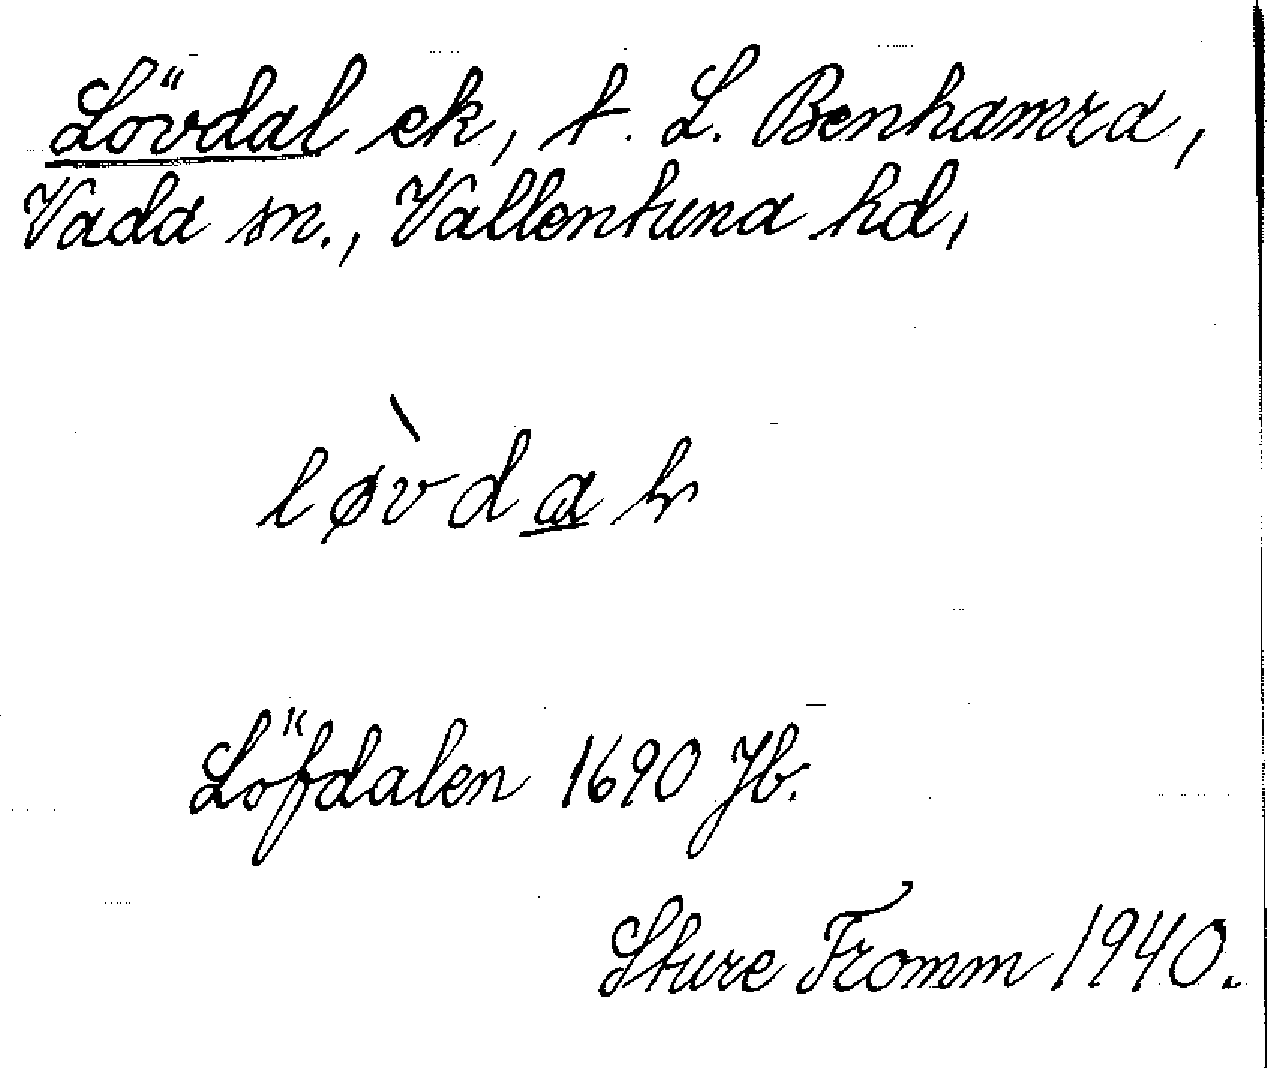 Lövdal ek, t. L. Benhamra,
Vada sn., Vallentuna hd,
lø̀vdaɬ
Löfdalen 1690 Jb.
Sture Fromm 1940.